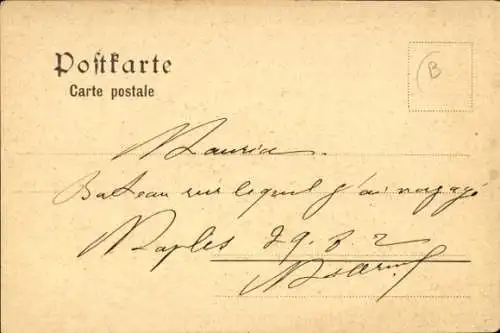 Postkarte
Carte postale
B
Bateau sur lequel j'ai voyagé
Naples 29.8.2